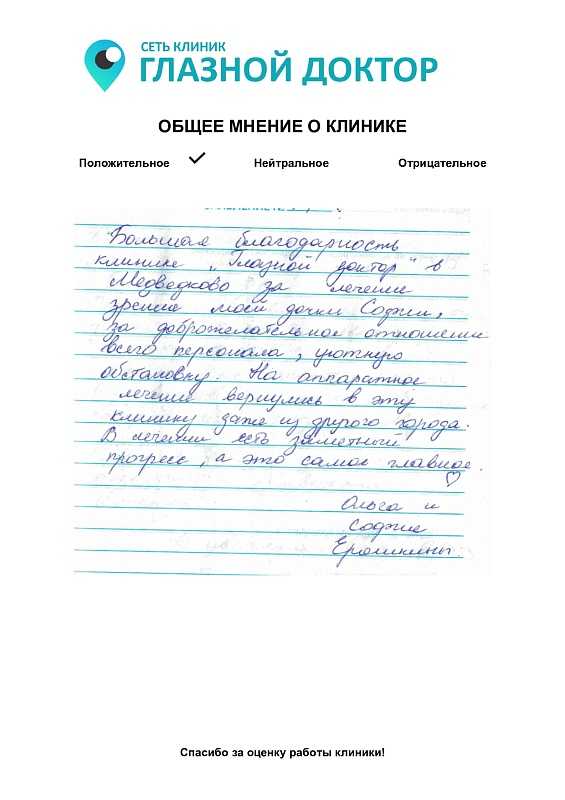 СЕТЬ КЛИНИК
ГЛАЗНОЙ ДОКТОР
ОБЩЕЕ МНЕНИЕ О КЛИНИКЕ
Положительное Нейтральное Отрицательное
Большая благодарность
клинике „Глазной доктор" в
Медведково за лечение
зрения моей дочки Соджи,
за доброжелательное отношение
всего персонала, уютную
обстановку. На аппаратное
лечение вернулись в эту
клинику даже из другого города.
В лечении есть заметный
прогресс, а это самое главное.
Ольга и
Соджие
Ерошкины
Спасибо за оценку работы клиники!